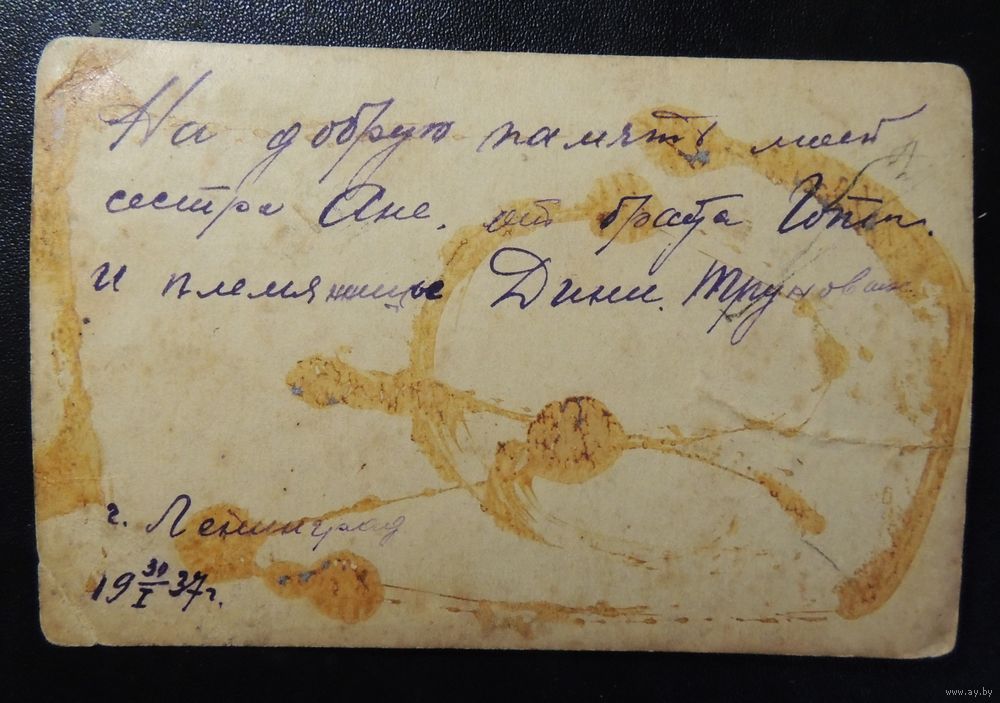 На добрую память моей
сестре Ане. от брата
и племянницы Дины.
г. Ленинград
19 30/I 37 г.
www.ay.by